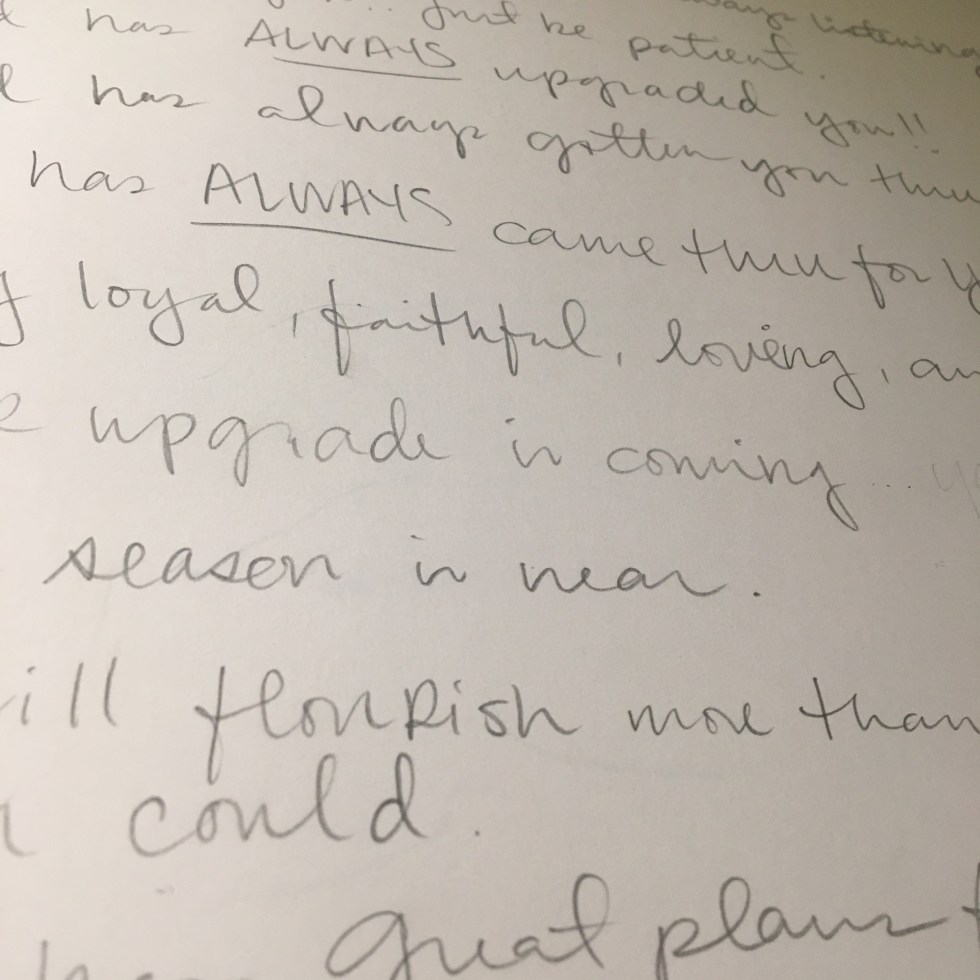 ... Just be patient. always listening
has ALWAYS upgraded you!!
has always gotten you thru
has ALWAYS came thru for
loyal, faithful, loving,
upgrade is coming...
season is near.
will flourish more than
could.
has great plans